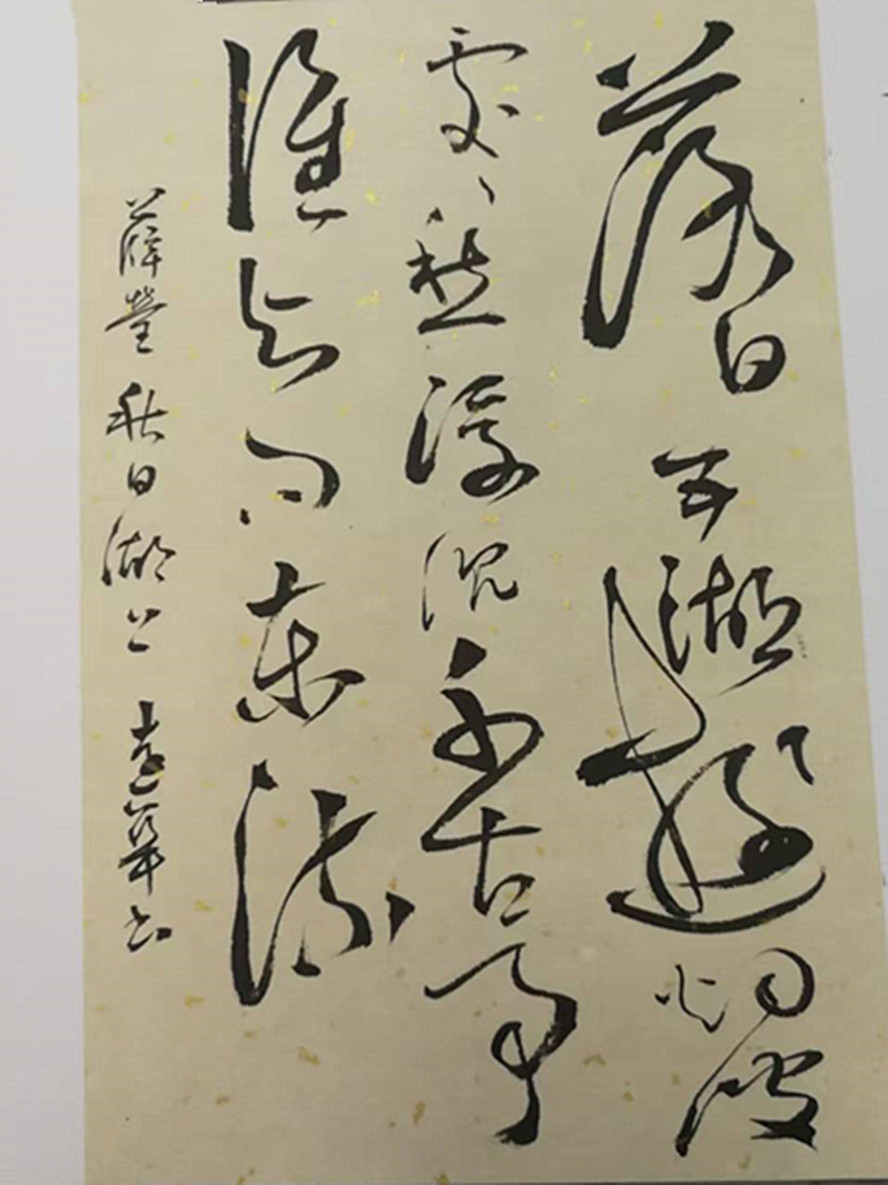 落日五湖遊烟波
處々愁浮沉千古事
誰与问東流
薛瑩 秋日湖上 书